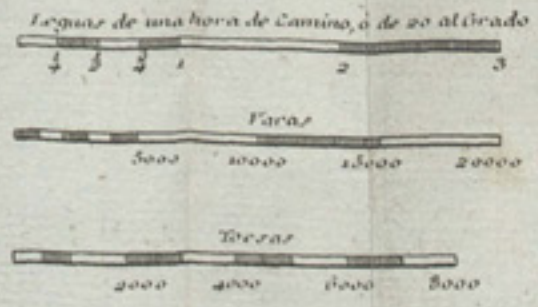 Leguas de una hora de Camino, ó de 20 al Grado
1 2 3
Varas
5000 10000 15000 20000
Toesas
2000 4000 6000 8000